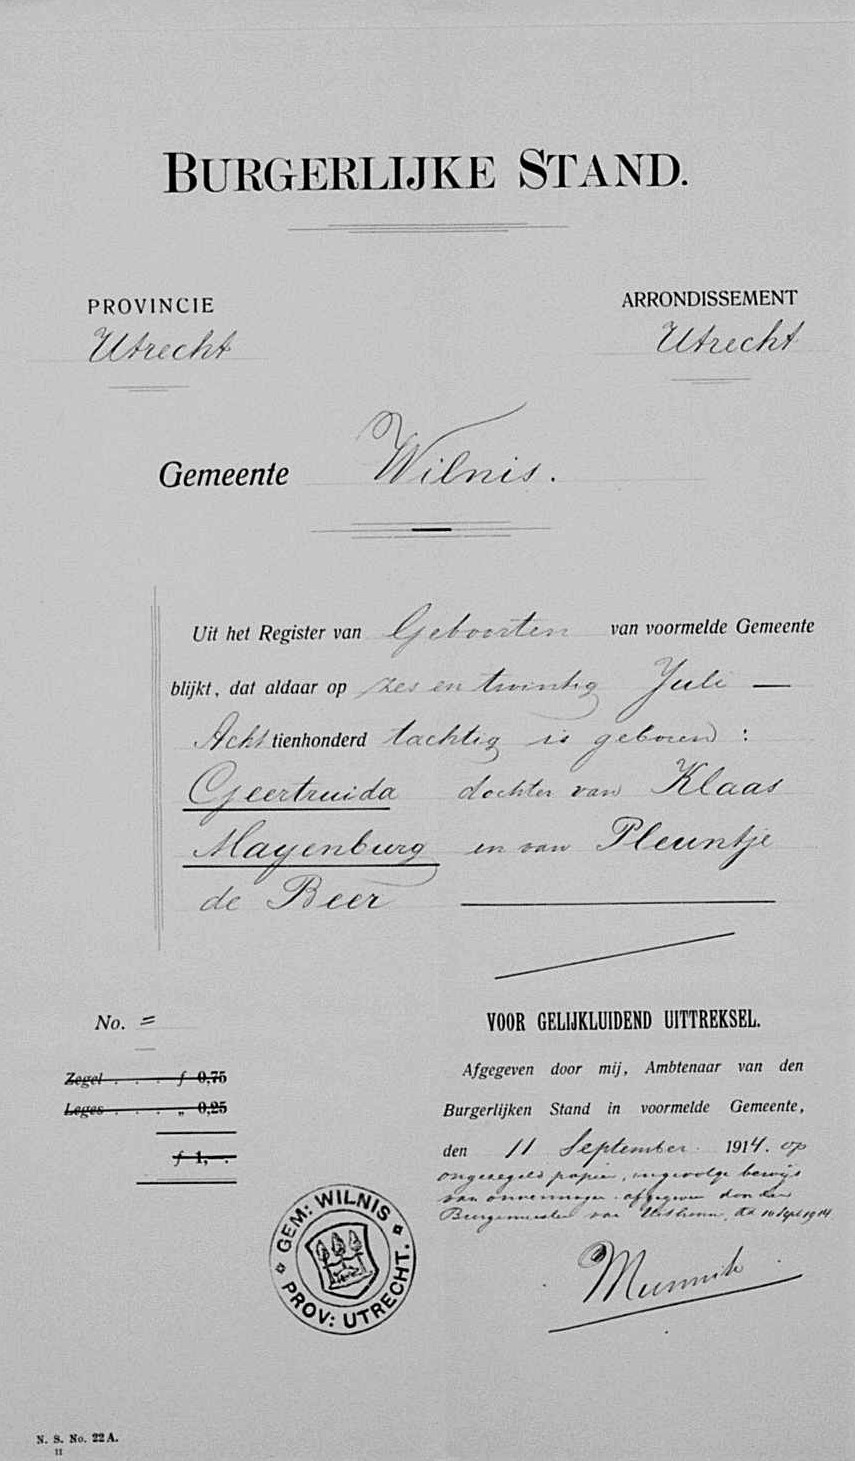 BURGERLIJKE STAND.
PROVINCIE
Utrecht
ARRONDISSEMENT
Utrecht
Gemeente Wilnis.
Uit het Register van Geboorten van voormelde Gemeente
blijkt, dat aldaar op zes en twintig Juli —
Achttienhonderd tachtig is geboren :
Geertruida dochter van Klaas
Mayenburg en van Pleuntje
de Beer
No. =
Zegel . . . f 0,75
Leges . . . „ 0,25
f 1,- .
VOOR GELIJKLUIDEND UITTREKSEL.
Afgegeven door mij, Ambtenaar van den
Burgerlijken Stand in voormelde Gemeente,
den 11 September 1914. op
ongezegeld papier, ingevolge bewijs
van onvermogen afgegeven door den
Burgemeester van Uithoorn, dd 10 Sept 1914
Munnik
GEM: WILNIS
PROV: UTRECHT.
N. S. No. 22 A.
11